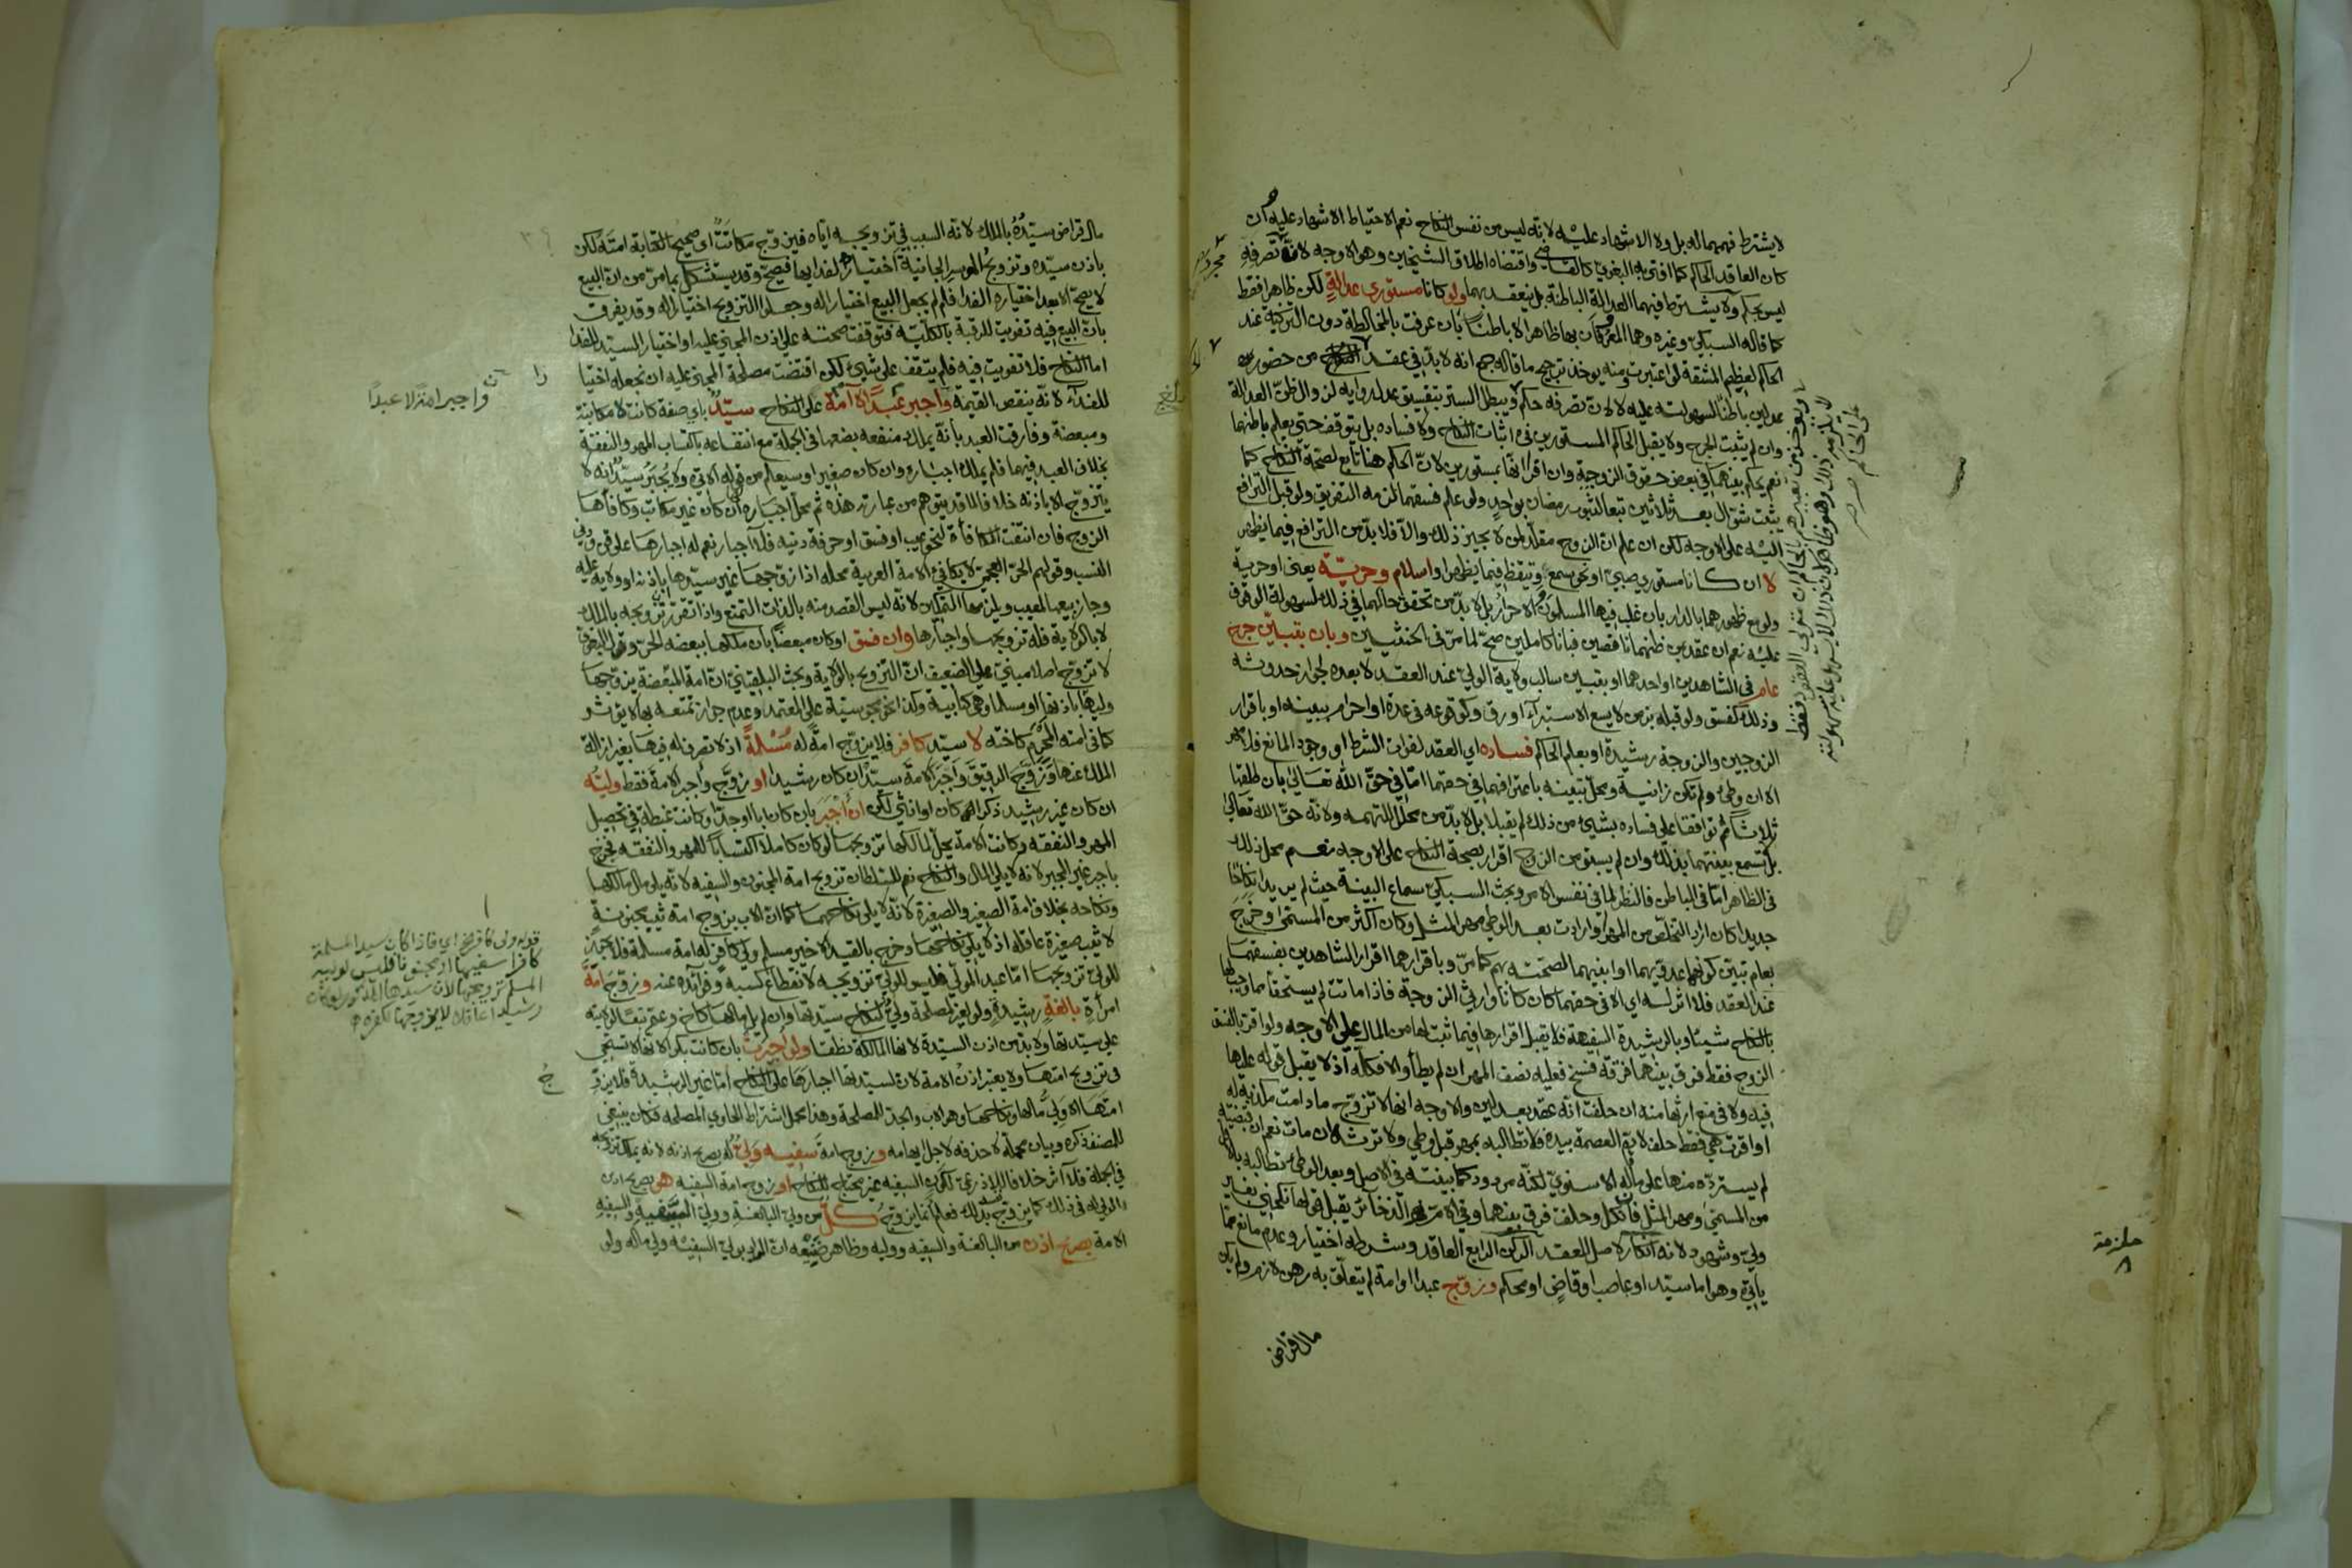 لا يشترط فهمهما له بل ولا الاشهاد عليه لانه ليس من نفس النكاح نعم الاحتياط الاشهاد عليه ان
كان العاقد الحاكم كما افتى به البغوي كالقاضي واقتضاه اطلاق الشيخين وهو الاوجه لان تصرفه
ليس بحكم ولا يشترط فيهما العدالة الباطنة بل ينعقد بهما ولو كانا مستوري عدالة لكن ظاهرا فقط
كما قاله السبكي وغيره وهما المعروفان بها ظاهرا لا باطنا بان عرفت بالمخالطة دون التزكية عند
الحاكم لعظيم المشقة لو اعتبرت ومنه يوخذ ترجيح ما قاله جمع انه لا بد في عقد النكاح من حضور
عدلين باطنا لسهولته عليه لا لان تصرفه حكم ويبطل الستر بتفسيق عدل رواية لزوال ظن العدالة
وان لم يثبت الجرح ولا يقبل الحاكم المستورين في اثبات النكاح ولا فساده بل يتوقف حتى يعلم باطنهما
نعم يحكم بينهما في بعض حقوق الزوجة وان اقرا انها بمستورين لان الحكم هنا تابع لصحة النكاح كما
يثبت شوال بعد ثلاثين تبعا لثبوت رمضان بواحد ولو علم فسقهما لزمه التفريق ولو قبل الترافع
اليه على الاوجه لكن ان علم ان الزوج مقلد لمن لا يجيز ذلك والا فلا بد من الترافع فيما يظهر
لا ان كانا مستوري صبي او نحو سمع وتيقظ فيما يظهر او اسلام وحرية يعني او حرية
ولو مع ظهورهما بالدار بان غلب فيها المسلمون والاحرار بل لا بد من تحقق حالهما في ذلك لسهولة الوقوف
عليه نعم ان عقد بمن ظنهما ناقصين فبانا كاملين صح لما مر في الخنثيين وبان بتبين جرح
عام في الشاهدين او احدهما او بتبين سالب ولاية الولي عند العقد لا بعده لجواز حدوثه
وذلك كفسق ولو قبله بزمن لا يسع الاستبراء او رق وكوقوعه في عدة او احرام ببينة او باقرار
الزوجين والزوجة رشيدة او بعلم الحاكم فساده اي العقد لفوات الشرط او وجود المانع فلا مهر
الا ان وطئ ولم تكن زانية ومحل تبينه باعترافهما في حقهما اما في حق الله تعالى بان طلقها
ثلاثا ثم توافقا على فساده بشيء من ذلك لم يقبلا بل لا بد من محلل للتهمة ولانه حق الله تعالى
بل تسمع بينتهما بذلك وان لم يسبق من الزوج اقرار بصحة النكاح على الاوجه نعم محل ذلك
في الظاهر اما في الباطن فالنظر لما في نفس الامر وبحث السبكي سماع البينة حيث لم يريدا نكاحا
جديدا كان اراد التخلص من المهر او ارادت بعد الوطي مهر المثل وكان اكثر من المسمى وخرج
بعام تبين كونهما عدويهما او ابنيهما لصحته بهم كما مر وباقرارهما اقرار الشاهدين بفسقهما
عند العقد فلا اثر له اي الا في حقهما كان كانا وارثي الزوجة فاذا ماتت لم يستحقا مما وجب لها
بالنكاح شيئا وبالرشيدة السفيهة فلا يقبل اقرارها فيما ثبت لها من المال على الاوجه ولو اقر بالفسق
الزوج فقط فرق بينهما فرقة فسخ فعليه نصف المهر ان لم يطأ والا فكله اذ لا يقبل قوله عليها
فيه ولا في منع ارثها منه ان حلفت انه عقد بعدلين والاوجه انها لا تزوج ما دامت مكذبة له
او اقرت هي فقط حلف لان العصمة بيده فلا تطالبه بمهر قبل وطي ولا ترثه ان مات نعم ان قبضته
لم يسترده منها على ما قاله الاسنوي لكنه مردود كما بينته في الاصل وبعد الوطي تطالبه بالاقل
من المسمى ومهر المثل فان نكل وحلفت فرق بينهما وفي الام والذخائر يقبل قولها نكحتني بغير
ولي وشهود لانه انكار لاصل العقد الركن الرابع العاقد وشرطه اختيار وعدم مانع مما
ياتي وهو اما سيد او عاصب او قاض او محكم وزوج عبدا او امة لم يتعلق به رهن لازم ولم يكن
مال قراض
ملزمة
٨
مال قراض سيده بالملك لانه السبب في تزويجه اياه فيزوج مكاتب اي صحيح الكتابة امته لكن
باذن سيده وتزويج الموسر الجانية اختيارا لفدائها فيصح وقد يستشكل بما مر من ان البيع
لا يصح الا بعد اختياره الفدا فلم لم يجعل البيع اختيارا له وجعلوا التزويج اختيارا له وقد يفرق
بان البيع فيه تفويت للرقبة بالكلية فتوقفت صحته على اذن المجني عليه او اختيار السيد للفدا
اما النكاح فلا تفويت فيه فلم يتوقف على شيء لكن اقتضت مصلحة المجني عليه ان نجعله اختيا
را
للفداء لانه ينقص القيمة واجبر عبدا لا امة على النكاح سيد باي صفة كانت لا مكاتبة
ومبعضة وفارقت العبد بانه يملك منفعة بضعها في الجملة مع انتفاعه باكتساب المهر والنفقة
بخلاف العبد فيهما فلم يملك اجباره وان كان صغيرا وسيعلم من قوله الآتي ولا يجبر سيد انه لا
يتزوج الا باذنه خلافا لما قد يتوهم من عبارته هذه ثم محل اجباره ان كان غير مكاتب وكافأها
الزوج فان انتفت الكفاءة لنحو عيب او فسق او حرفة دنية فلا اجبار نعم له اجبارها على رقيق ودني
النسب وقولهم الحر العجمي لا يكافئ الامة العربية محله اذا زوجها غير سيدها باذنه او ولاية عليه
وجاز بيعها لمعيب ويلزمها التمكين لانه ليس القصد منه بالذات التمتع واذا تقرر تزويجه بالملك
لا بالولاية فله تزويجها واجبارها وان فسق او كان مبعضا بان ملكها ببعضه الحر وقول البغوي
لا تزوج اصلا مبني على الضعيف ان التزويج بالولاية وبحث البلقيني ان امة المبعضة يزوجها
وليها باذنها او مسلما وهي كتابية وكذا نحو مجوسية على المعتمد وعدم جواز تمتعه بها لا يؤثر
كما في امته المحرم كاخته لا سيد كافر فلا يزوج امة له مسلمة اذ لا تصرف له فيها بغير ازالة
الملك عنها وزوج الرقيق واجبر الامة سيد ان كان رشيدا او زوج واجبر الامة فقط وليه
ان كان غير رشيد ذكرا كان او انثى لكن ان اجبر بان كان ابا او جدا وكانت غبطة في تحصيل
المهر والنفقة وكانت الامة يحل لمالكها تزويجها لو كان كاملا اكتسابا للمهر والنفقة فخرج
باجبر غير المجبر لانه لا يلي المال والنكاح نعم للسلطان تزويج امة المجنون والسفيه لانه يلي مال مالكها
ونكاحه بخلاف امة الصغير والصغيرة لانه لا يلي نكاحهما كما ان الاب يزوج امة ثيب مجنونة
لا ثيب صغيرة عاقلة اذ لا يلي نكاحها وخرج بالقيد الاخير مسلم ولي كافر له امة مسلمة فلا يجوز
للولي تزويجها اما عبد المولي فليس للولي تزويجه لانقطاع كسبه وفوائده عنه وزوج امة
امرأة بالغة رشيدة ولو لغير مصلحة ولي نكاح سيدتها وان لم يل مالها كاخ وعم تبعا لولايته
على سيدتها ولا بد من اذن السيدة لانها المالكة نطقا ولو اجبرت بان كانت بكرا لانها لا تستحي
في تزويج امتها ولا يعتبر اذن الامة لان لسيدتها اجبارها على النكاح اما غير الرشيدة فلا يزو
ج
امتها الا ولي مالها ونكاحها وهو الاب والجد للمصلحة وهذا محمل اشتراط الحاوي المصلحة فكان ينبغي
للمصنف ذكره وبيان محله لا حذفه لاجل ايهامه وزوج امة سفيه ولي له بصريح اذنه لانه يملك تزويجه
في الجملة فلا اثر خلافا للاذرعي لكون السفيه غير محتاج للنكاح او زوج امة السفيه هو بصريح اذن
الولي له في ذلك كما يزوج بذلك فعلم انه انما يزوج كل من ولي البالغة وولي السفيه والسفيه
الامة بصريح اذن من البالغة والسفيه ووليه وظاهر صنيعه ان المراد بولي السفيه ولي ماله ولو
واجبر امة لا عبدا
قوله ولي كافر الخ اي فاذا كان سيد المسلمة
كافرا سفيها او مجنونا فليس لوليه
المسلم تزويجها لان سيدها المذكور لو كان
رشيدا عاقلا لا يزوجها لكفره